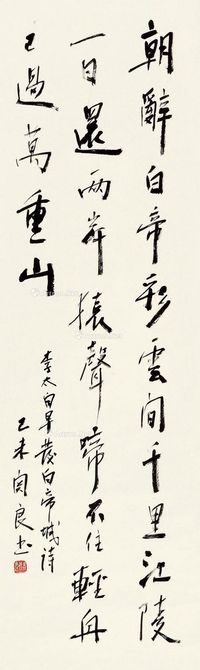 朝辭白帝彩雲間千里江陵
一日還兩岸猿聲啼不住輕舟
已過萬重山
李太白早發白帝城詩
乙未関良书